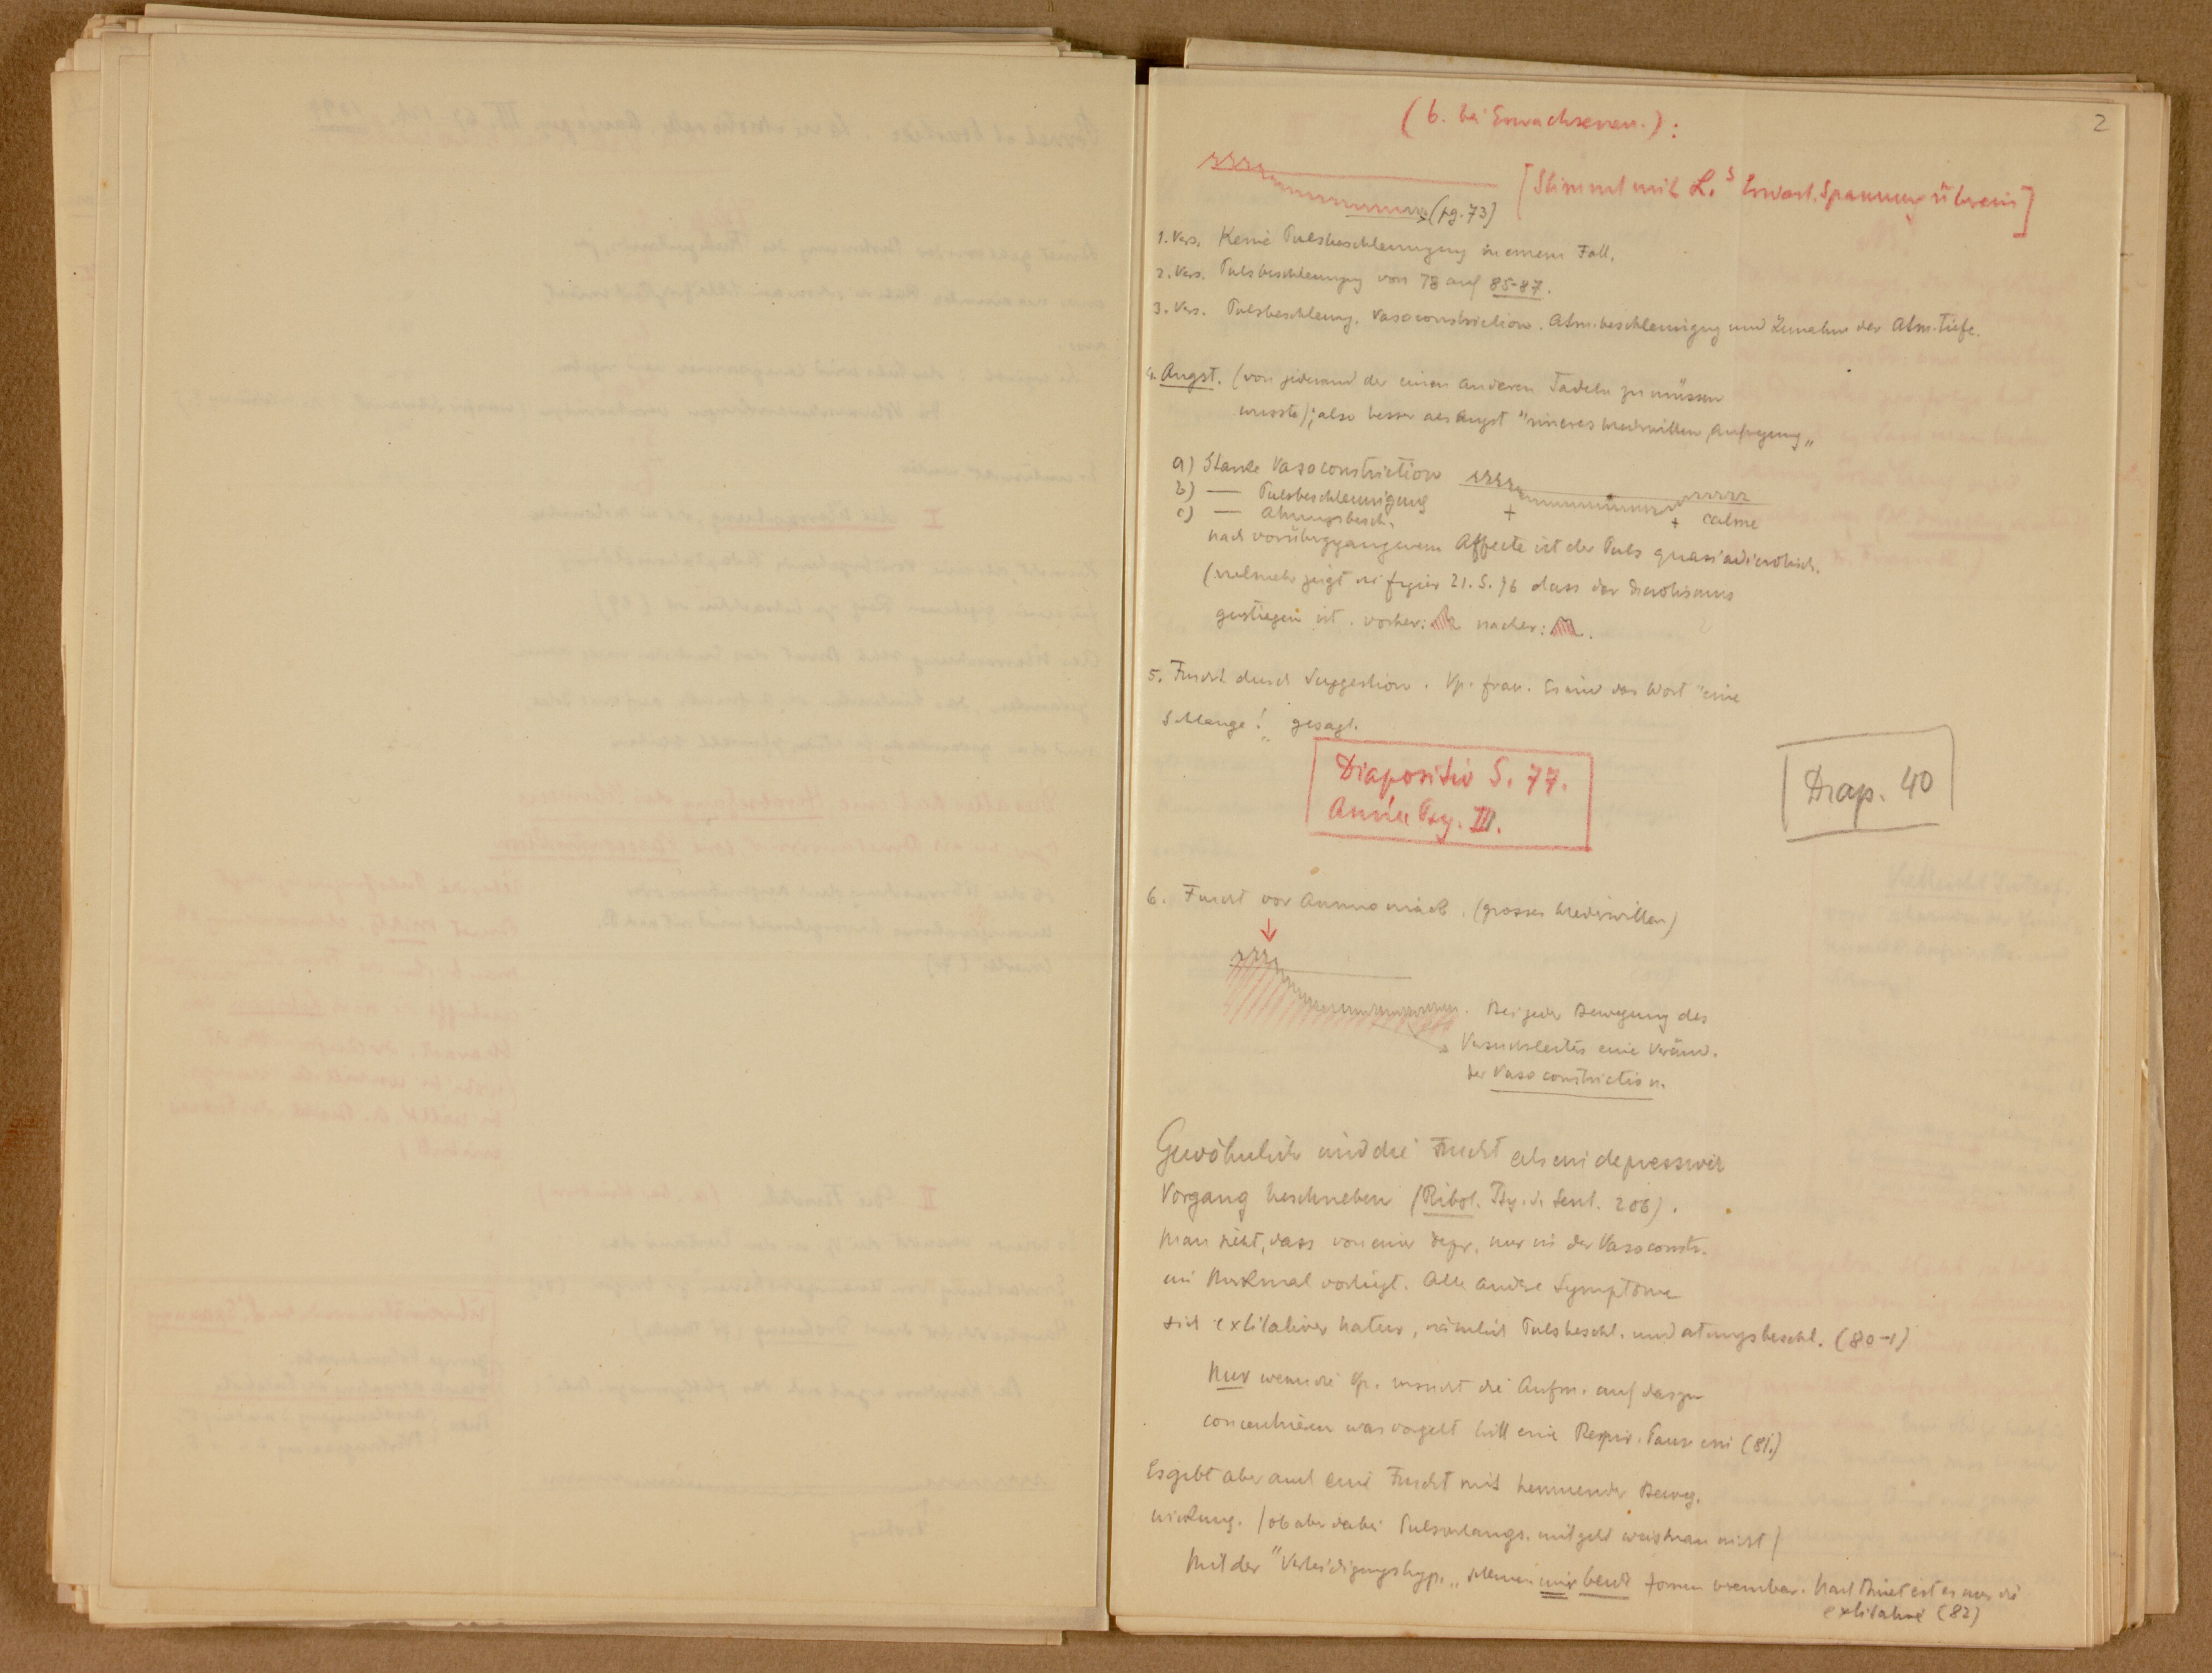 2
(b. bei Erwachsenen.) :
[Stimmt mit L.s Erwart. Spannung überein]
(pg. 73)
1. Vers. Keine Pulsbeschleunigung in einem Fall.
2. Vers. Pulsbeschleunigung von 78 auf 85-87.
3. Vers. Pulsbeschleung. Vasoconstriction. Atm.beschleunigung und Zunahme der Atm.tiefe.
4. Angst. (von jemand der einen anderen Tadeln zu müssen
wusste); also besser als Angst "inneres Widerwillen, Aufregung"
a) Starke Vasoconstriction
b) — Pulsbeschleunigung
c) — Atmungsbesch.
+ + calme
nach vorübergegangenem Affecte ist der Puls quasi adicrotisch.
(vielmehr zeigt die figur 21. S. 76 dass der Dicrotismus
gestiegen ist. vorher: nacher: .
5. Furcht durch Suggestion. Vp. frau. Es wird das Wort "eine
Schlange!" gesagt.
Diapositiv S. 77.
Année Psy. III.
Diap. 40
6. Furcht vor Ammoniack. (grosser Widerwillen)
Bei jeder Bewegung des
Versuchsleiters eine Veränd.
der Vasoconstriction.
Gewöhnlich wird die Furcht als ein depressiver
Vorgang beschrieben (Ribot. Psy. d. Sent. 206).
Man sieht, dass von einer depr. nur in der Vasoconstr.
ein Merkmal vorliegt. Alle andere Symptome
sind exzitativer Natur, nämlich Pulsbeschl. und atmungsbeschl. (80-1)
Nur wenn die Vp. versucht die Aufm. auf das zu
concentrieren was vorgeht tritt eine Respir. Pause ein (81.)
Es gibt aber auch eine Furcht mit hemmender Beweg.
wirkung. (ob aber dabei Pulsverlangs. mitgeht weisst man nicht)
Mit der "Verteidigungshyp." scheinen mir beide formen vereinbar. Nach Binet ist es nur die
exzitative (82)